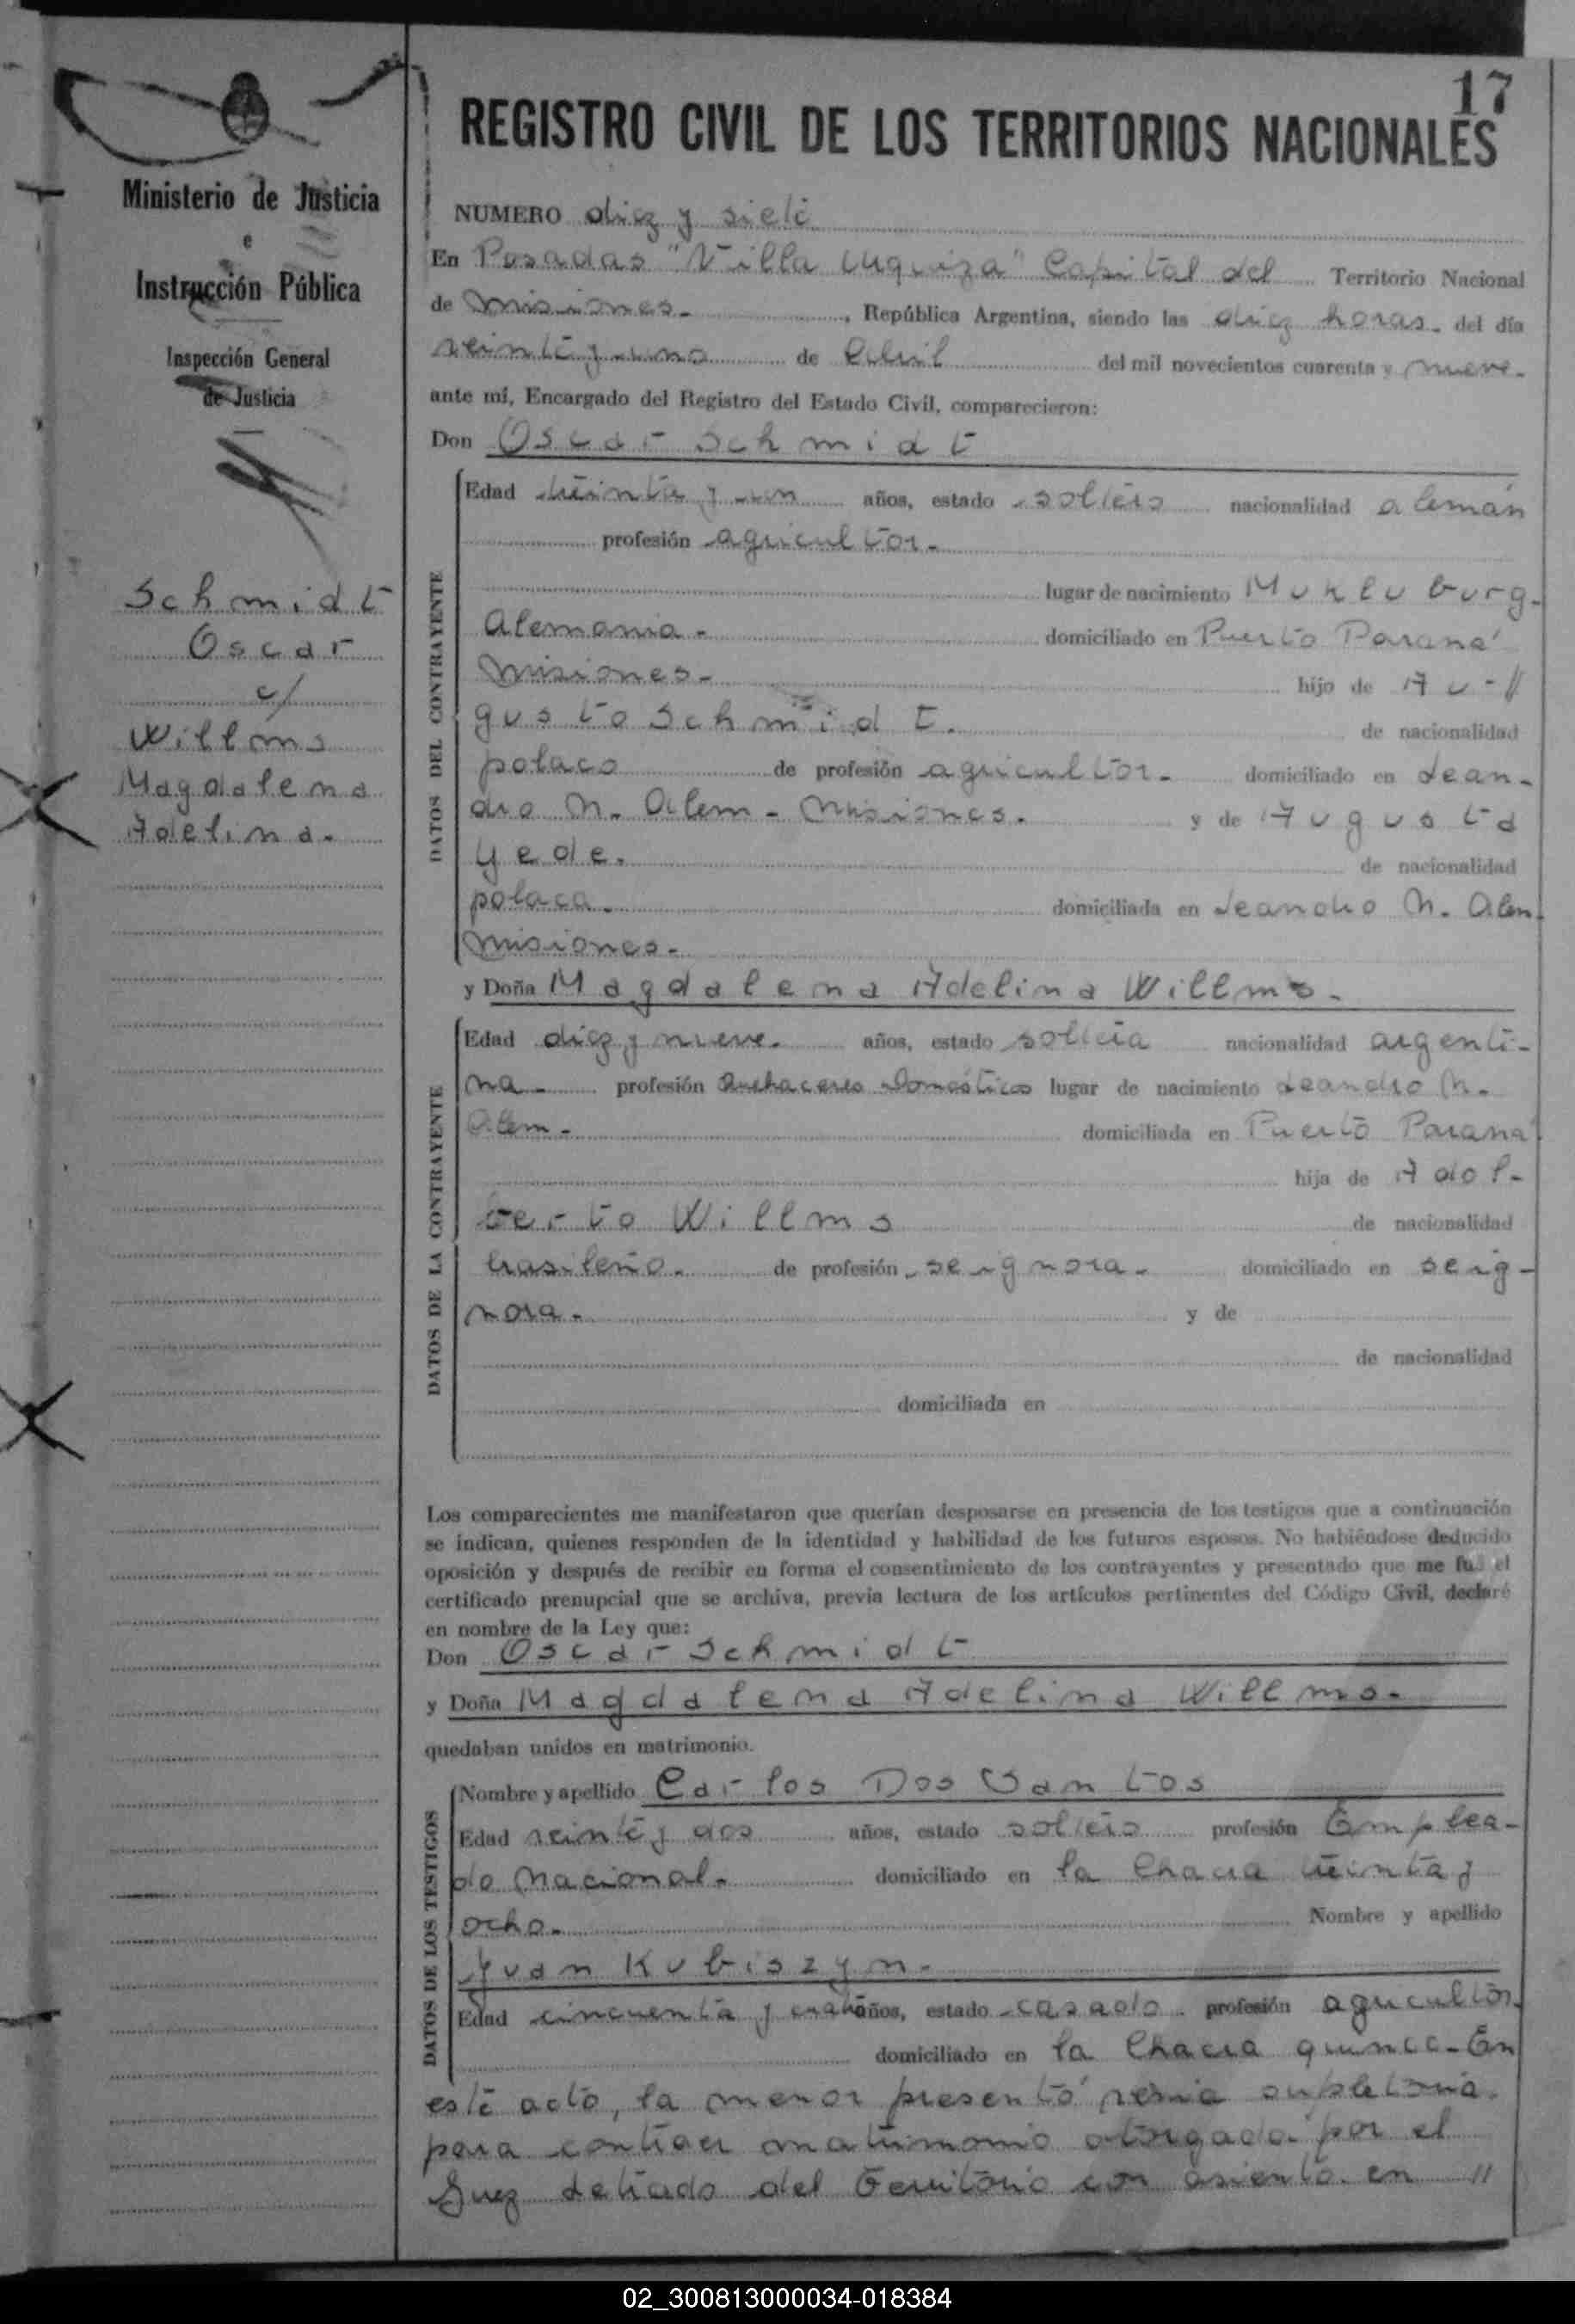 17
REGISTRO CIVIL DE LOS TERRITORIOS NACIONALES
Ministerio de Justicia
e
Instrucción Pública
Inspección General
de Justicia
Schmidt
Oscar
c/
Willms
Magdalena
Adelina.
NUMERO diez y siete
En Posadas "Villa Urquiza" Capital del Territorio Nacional
de Misiones. , República Argentina, siendo las diez horas. del día
veinte y uno de Abril del mil novecientos cuarenta y nueve.
ante mí, Encargado del Registro del Estado Civil, comparecieron:
Don Oscar Schmidt
DATOS DEL CONTRAYENTE
Edad treinta y un años, estado soltero nacionalidad alemán
profesión agricultor.
lugar de nacimiento Mukluburg.
Alemania. domiciliado en Puerto Paraná
Misiones. hijo de Au-//
gusto Schmidt. de nacionalidad
polaco de profesión agricultor. domiciliado en Lean-
dro N. Alem - Misiones. y de Augusta
Yede. de nacionalidad
polaca. domiciliada en Leandro N. Alem.
Misiones.
y Doña Magdalena Adelina Willms.
DATOS DE LA CONTRAYENTE
Edad diez y nueve. años, estado soltera nacionalidad argenti-
na. profesión Quehaceres Domésticos lugar de nacimiento Leandro N.
Alem. domiciliada en Puerto Paraná
hija de Adol-
berto Willms de nacionalidad
brasileño. de profesión se ignora. domiciliado en se ig-
nora. y de
de nacionalidad
domiciliada en
Los comparecientes me manifestaron que querían desposarse en presencia de los testigos que a continuación
se indican, quienes responden de la identidad y habilidad de los futuros esposos. No habiéndose deducido
oposición y después de recibir en forma el consentimiento de los contrayentes y presentado que me fué el
certificado prenupcial que se archiva, previa lectura de los artículos pertinentes del Código Civil, declaré
en nombre de la Ley que:
Don Oscar Schmidt
y Doña Magdalena Adelina Willms.
quedaban unidos en matrimonio.
DATOS DE LOS TESTIGOS
Nombre y apellido Carlos Dos Santos
Edad veinte y dos años, estado soltero profesión Emplea-
do Nacional. domiciliado en la Chacra treinta y
ocho. Nombre y apellido
Juan Kubiszyn.
Edad cincuenta y cuatro años, estado casado. profesión agricultor.
domiciliado en la Chacra quince. En
este acto, la menor presentó venia supletoria
para contraer matrimonio otorgada por el
Juez Letrado del Territorio con asiento en //
02_300813000034-018384